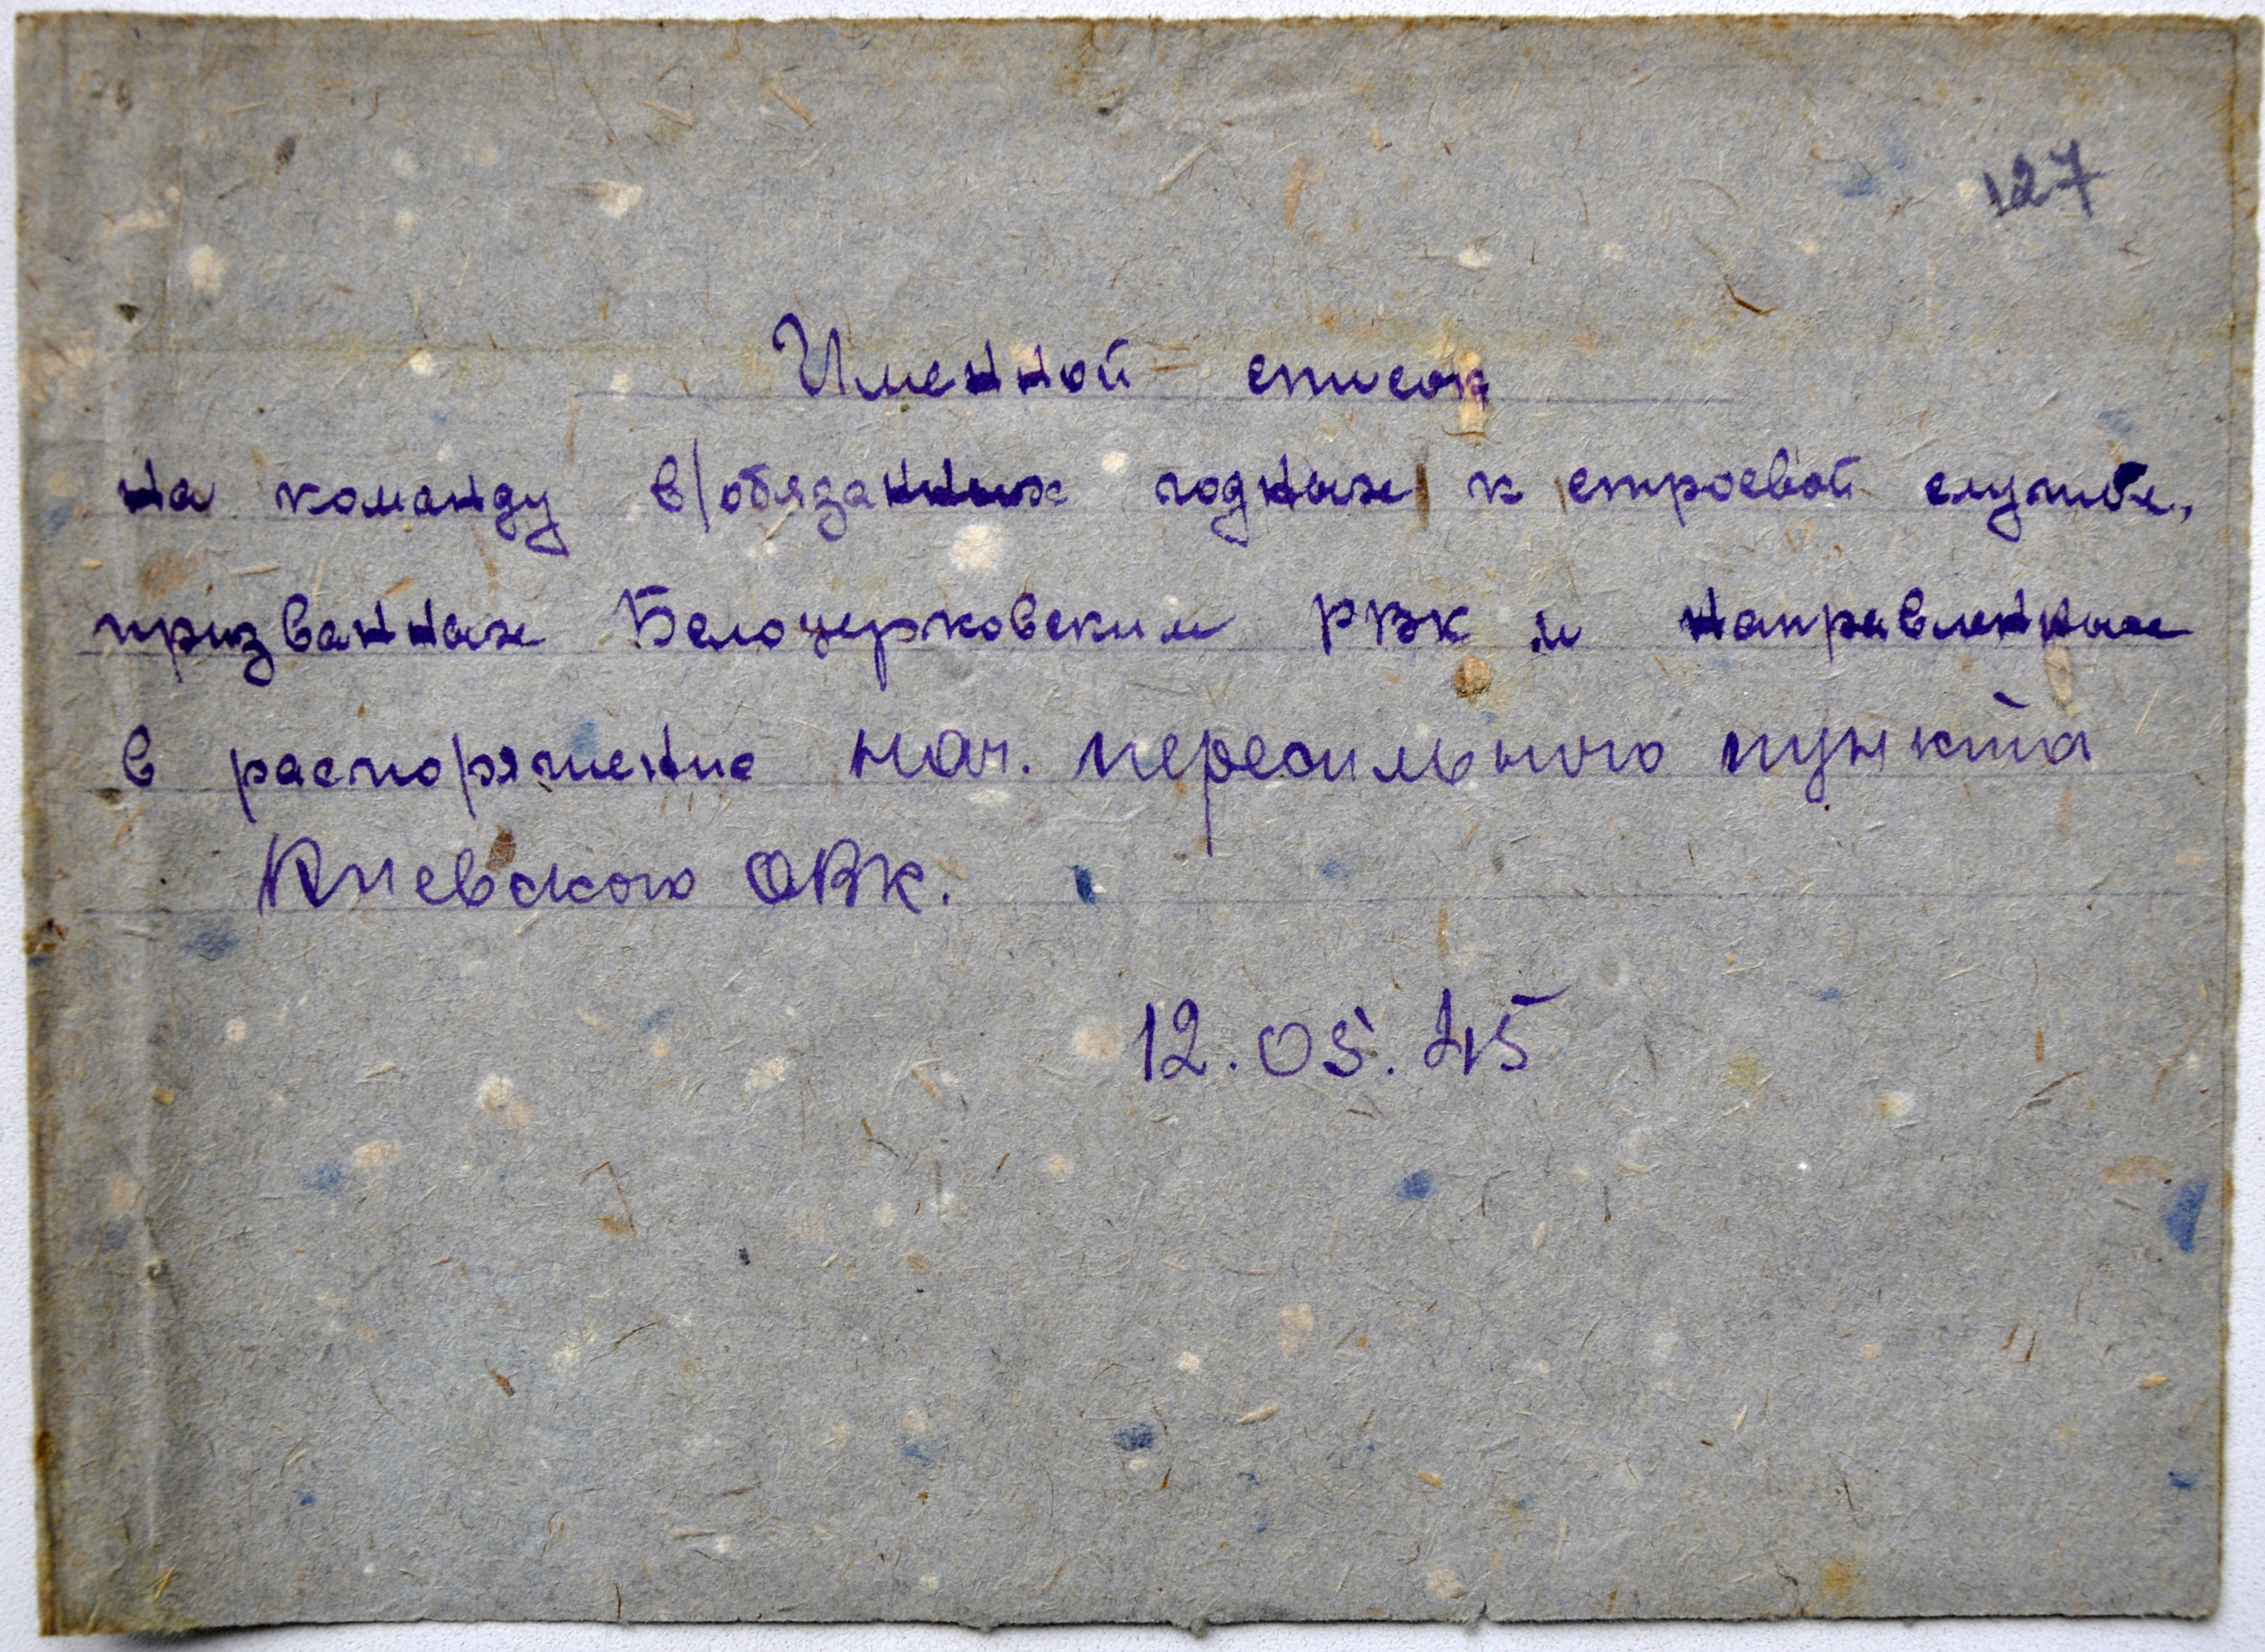 127
Именной список
на команду в/обязанных годных к строевой службе,
призванных Белоцерковским РВК и направленных
в распоряжение нач. пересильного пункта
Киевского ОВК.
12.05.45